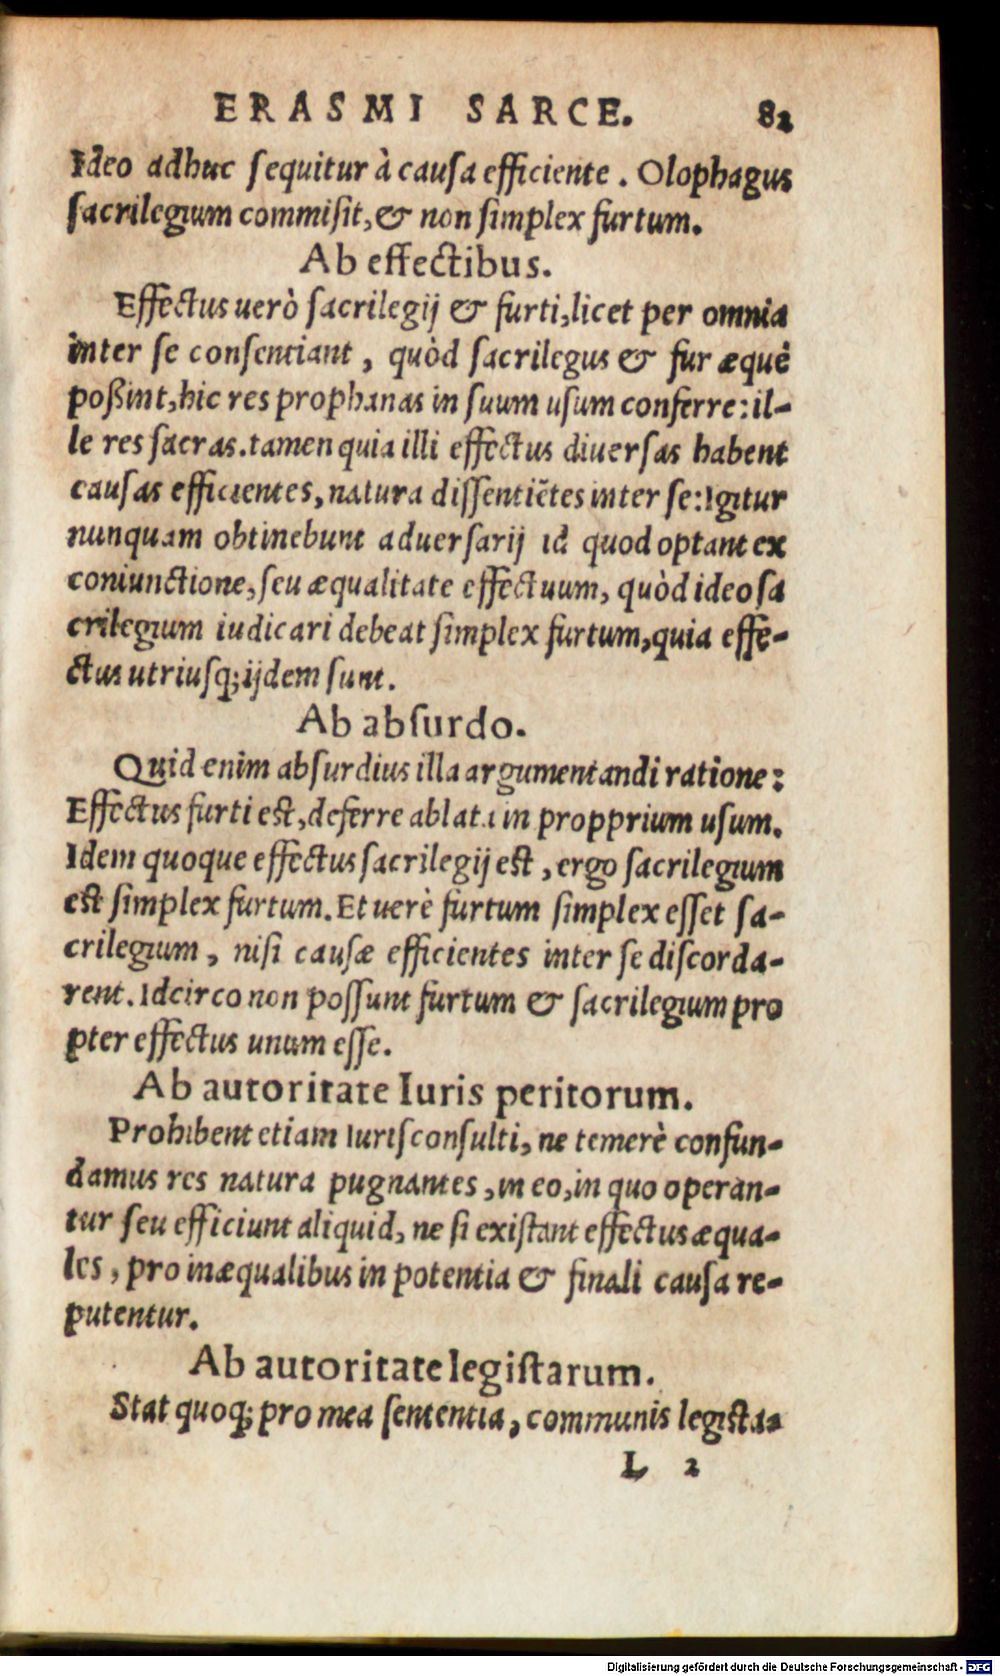 ERASMI SARCE. 82
Ideo adhuc sequitur à causa efficiente. Olophagus
sacrilegium commisit, & non simplex furtum.
Ab effectibus.
Effectus uerò sacrilegij & furti, licet per omnia
inter se consentiant, quòd sacrilegus & fur æquè
poßint, hic res prophanas in suum usum conferre: il-
le res sacras. tamen quia illi effectus diuersas habent
causas efficientes, natura dissentiẽtes inter se: Igitur
nunquam obtinebunt aduersarij id quod optant ex
coniunctione, seu æqualitate effectuum, quòd ideo sa
crilegium iudicari debeat simplex furtum, quia effe-
ctus utriusq; ijdem sunt.
Ab absurdo.
Quid enim absurdius illa argumentandi ratione:
Effectus furti est, deferre ablata in propprium usum.
Idem quoque effectus sacrilegij est, ergo sacrilegium
est simplex furtum. Et uerè furtum simplex esset sa-
crilegium, nisi causæ efficientes inter se discorda-
rent. Idcirco non possunt furtum & sacrilegium pro
pter effectus unum esse.
Ab autoritate Iuris peritorum.
Prohibent etiam Iurisconsulti, ne temerè confun-
damus res natura pugnantes, in eo, in quo operan-
tur seu efficiunt aliquid, ne si existant effectus æqua-
les, pro inæqualibus in potentia & finali causa re-
putentur.
Ab autoritate legistarum.
Stat quoq; pro mea sententia, communis legista-
L 2
Digitalisierung gefördert durch die Deutsche Forschungsgemeinschaft - DFG